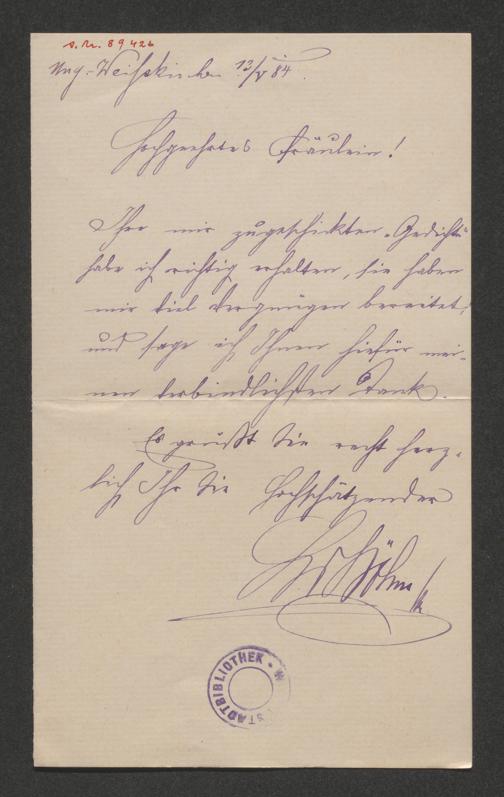 J.N. 89426
Ung.-Weißkirchen 13/V 84.
Hochgeehrtes Fräulein!
Ihre mir zugeschickten Gedichte
habe ich richtig erhalten, sie haben
mir viel Vergnügen bereitet,
und sage ich Ihnen hiefür mei-
nen verbindlichsten Dank.
Es grüßt Sie recht herz-
lich Ihr Sie Hochschätzender
Böhm
STADTBIBLIOTHEK